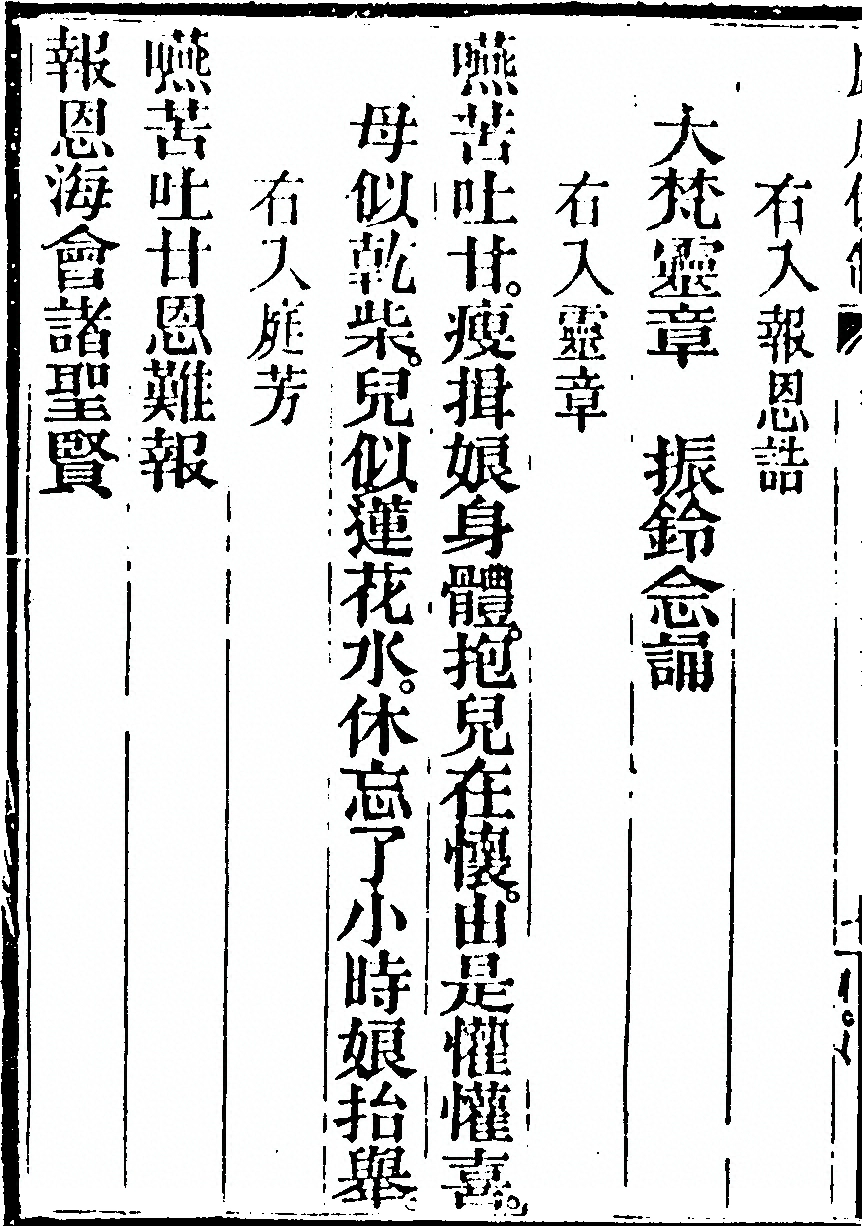 右入報恩誥
大梵靈章　振鈴念誦
右入靈章
嚥苦吐甘。瘦損娘身體。抱兒在懷。由是懽懽喜。
母似乾柴。兒似蓮花水。休忘了小時娘抬舉。
右入庭芳
嚥苦吐甘恩難報
報恩海會諸聖賢